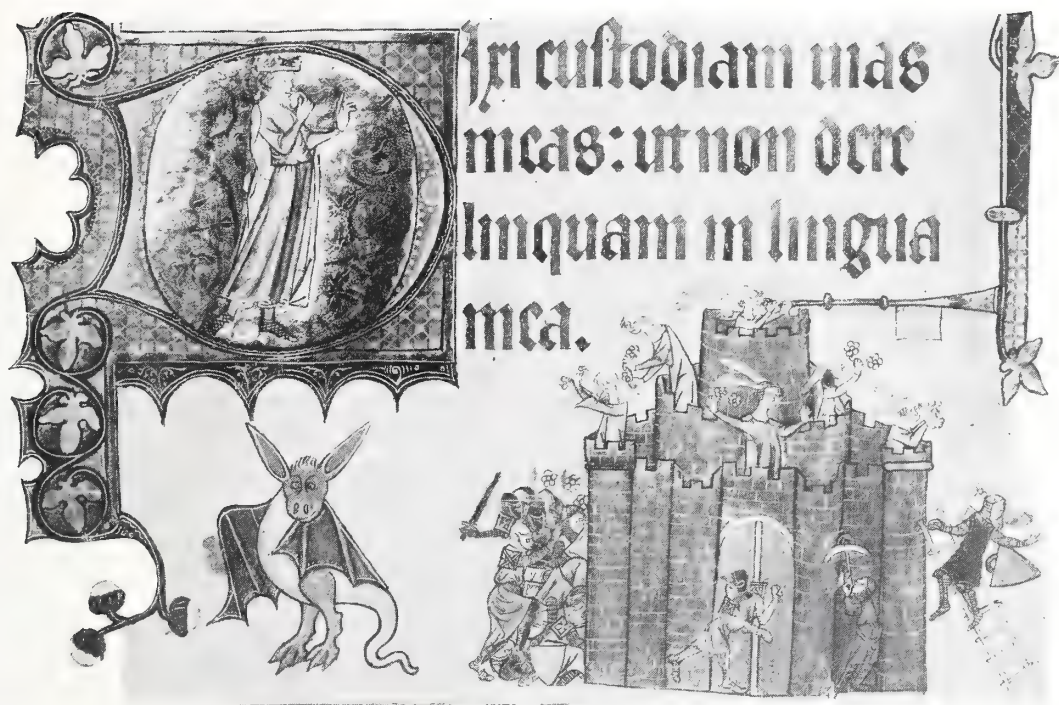 Dixi custodiam uias
meas: ut non dere
linquam in lingua
mea.